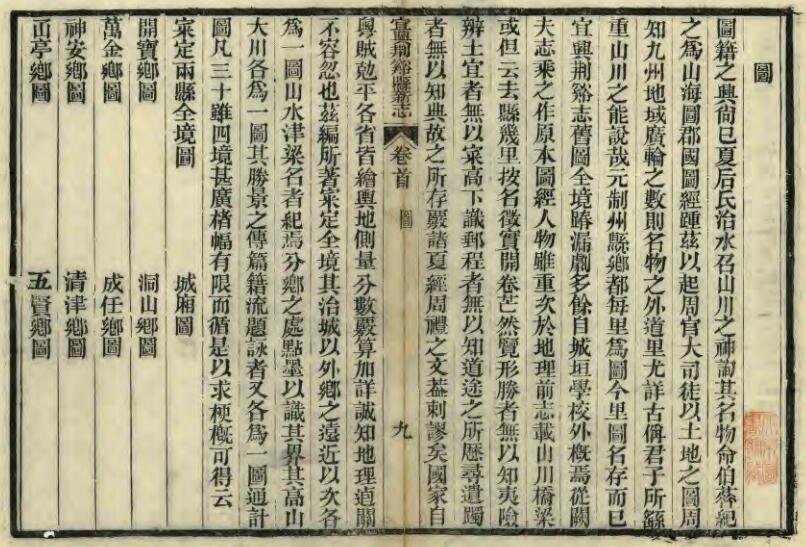 圖
圖籍之興尙已夏后氏治水召山川之神詢其名物命伯益紀
之爲山海圖郡國圖經踵茲以起周官大司徒以土地之圖周
知九州地域廣輪之數則名物之外道里尤詳古偁君子所繇
重山川之能說哉元制州縣鄉都每里爲圖今里圖名存而已
宜興荊谿志舊圖全境踳漏劇多餘自城垣學校外槪焉從闕
夫志乘之作原本圖經人物雖重次於地理前志載山川橋梁
或但云去縣幾里按名徵實開卷芒然覽形勝者無以知夷險
辨土宜者無以寀高下識郵程者無以知道途之所歷尋遺躅
者無以知典故之所存覈諸夏經周禮之文葢刺謬矣國家自
宜興荊谿縣新志
卷首
圖
九
粵賊勊平各省皆繪輿地測量分數覈算加詳誠知地理逌關
不容忽也茲編所著寀定全境其治城以外鄉之遠近以次各
爲一圖山水津梁名者紀焉分鄉之處點墨以識其界其高山
大川各爲一圖其勝景之傳篇籍流題詠者又各爲一圖通計
圖凡三十雖四境甚廣楮幅有限而循是以求梗槪可得云
寀定兩縣全境圖
城廂圖
開寶鄉圖
洞山鄉圖
萬金鄉圖
成任鄉圖
神安鄉圖
清津鄉圖
山亭鄉圖
五賢鄉圖